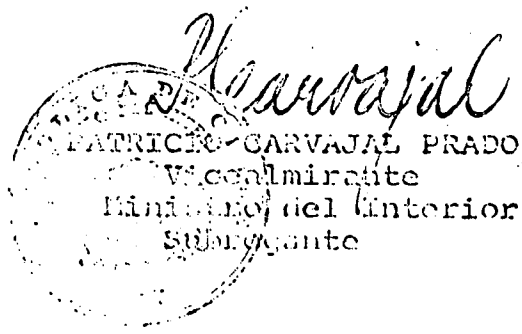 PCarvajal
PATRICIO CARVAJAL PRADO
Vicealmirante
Ministro del Interior
Subrogante